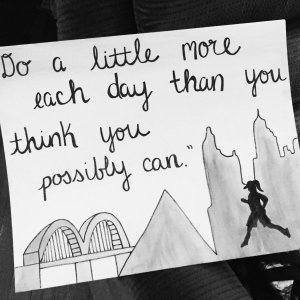 Do a little more
each day than you
think you
possibly can."